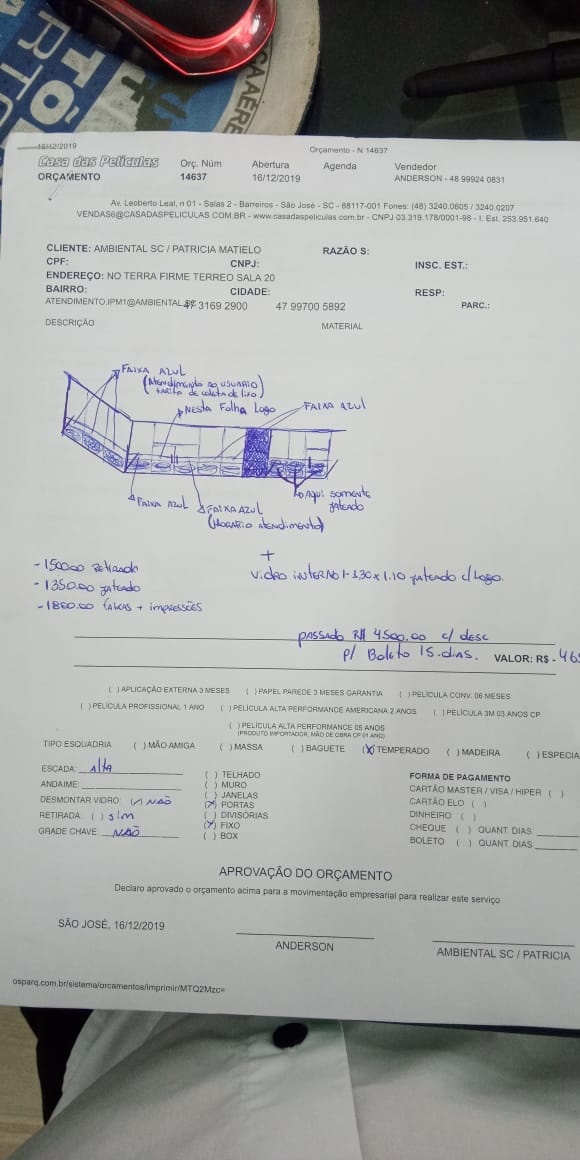 16/12/2019
Orçamento - N 14637
Casa das Películas
Orç. Núm Abertura Agenda Vendedor
ORÇAMENTO 14637 16/12/2019 ANDERSON - 48 99924 0831
Av. Leoberto Leal, n 01 - Salas 2 - Barreiros - São José - SC - 88117-001 Fones: (48) 3240.0605 / 3240.0207
VENDAS6@CASADASPELICULAS.COM.BR - www.casadaspeliculas.com.br - CNPJ 03.319.178/0001-98 - I. Est. 253.951.640
CLIENTE: AMBIENTAL SC / PATRICIA MATIELO RAZÃO S:
CPF: CNPJ: INSC. EST.:
ENDEREÇO: NO TERRA FIRME TERREO SALA 20
BAIRRO: CIDADE: RESP:
ATENDIMENTO.IPM1@AMBIENTAL 3169 2900 47 99700 5892 PARC.:
DESCRIÇÃO MATERIAL
FAIXA AZUL
(Atendimento ao USUARIO
tarifa de coleta de lixo)
Nesta Folha Logo FAIXA AZUL
FAIXA AZUL
FAIXA AZUL
(HORARIO Atendimento)
Aqui somente
jateado
+
Vidro INTERNO 1-1.30 x 1.10 jateado c/ Logo.
- 1500.00 Retirada
- 1350.00 jateado
- 1800.00 faixas + impressões
passado R$ 4500.00 c/ desc
p/ Boleto 15.dias. VALOR: R$ - 465
( ) APLICAÇÃO EXTERNA 3 MESES ( ) PAPEL PAREDE 3 MESES GARANTIA ( ) PELÍCULA CONV. 06 MESES
( ) PELÍCULA PROFISSIONAL 1 ANO ( ) PELÍCULA ALTA PERFORMANCE AMERICANA 2 ANOS ( ) PELÍCULA 3M 03 ANOS CP
( ) PELÍCULA ALTA PERFORMANCE 05 ANOS
(PRODUTO IMPORTADOR, MÃO DE OBRA CP 01 ANO)
TIPO ESQUADRIA ( ) MÃO AMIGA ( ) MASSA ( ) BAGUETE (X) TEMPERADO ( ) MADEIRA ( ) ESPECIA
ESCADA: Alta
ANDAIME:
DESMONTAR VIDRO: NÃO
RETIRADA: ( ) SIM
GRADE CHAVE: NÃO
( ) TELHADO
( ) MURO
( ) JANELAS
(X) PORTAS
( ) DIVISÓRIAS
(X) FIXO
( ) BOX
FORMA DE PAGAMENTO
CARTÃO MASTER / VISA / HIPER ( )
CARTÃO ELO ( )
DINHEIRO ( )
CHEQUE ( ) QUANT. DIAS
BOLETO ( ) QUANT. DIAS
APROVAÇÃO DO ORÇAMENTO
Declaro aprovado o orçamento acima para a movimentação empresarial para realizar este serviço
SÃO JOSÉ, 16/12/2019
ANDERSON AMBIENTAL SC / PATRICIA
osparq.com.br/sistema/orcamentos/imprimir/MTQ2Mzc=